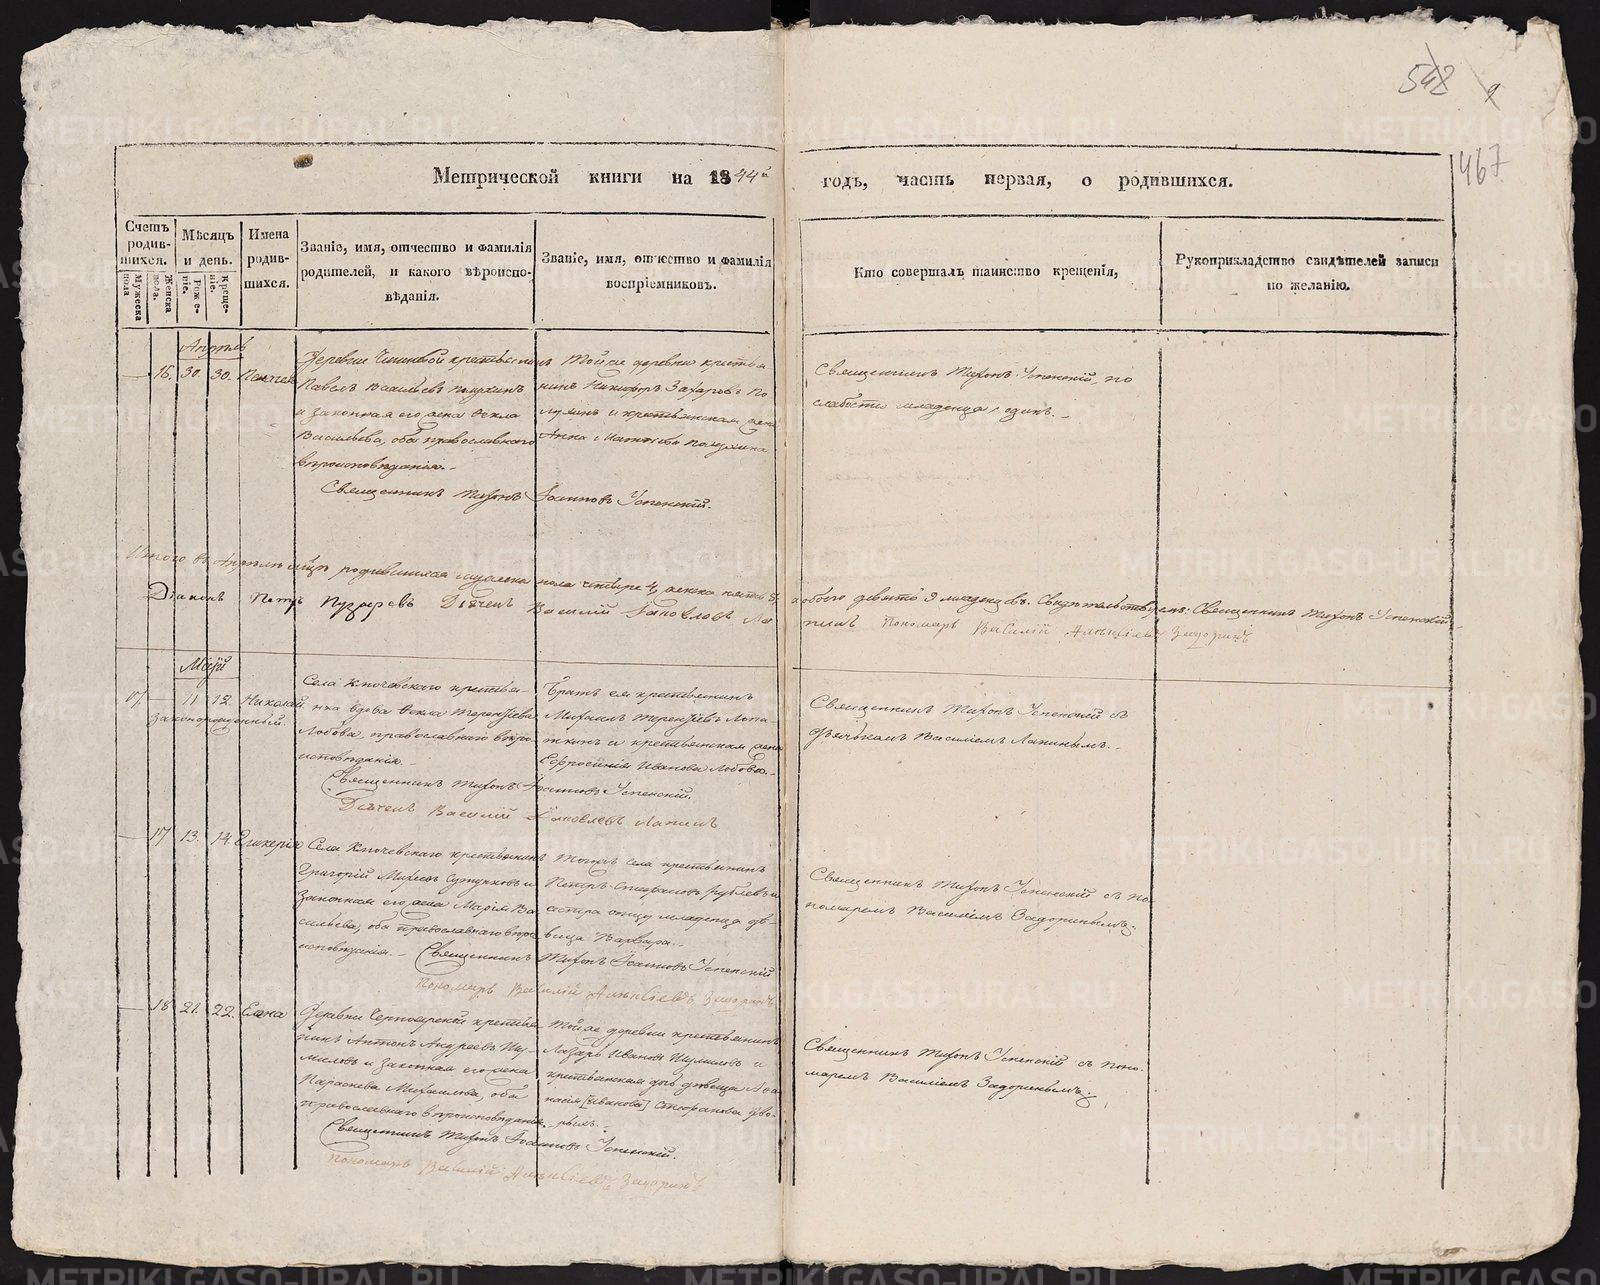 542
467
Метрической книги на 1844й годъ, часть первая, о родившихся.
Счетъ родив-шихся.
Мужеска пола
Женска пола.
Мѣсяцъ и день.
Рожде-ніе.
Креще-ніе.
Имена родив-шихся.
Званіе, имя, отчество и фамилія
родителей, и какого вѣроиспо-
вѣданія.
Званіе, имя, отчество и фамилія
воспріемниковъ.
Кто совершалъ таинство крещенія,
Рукоприкладство свидѣтелей записи
по желанію.
Апрѣль
16. 30. 30.
Деревни крестьянинъ
Павелъ Васильевъ
и законная его жена Ѳекла
Васильева, оба православнаго
вѣроисповѣданія.
Священникъ Тихонъ Іоанновъ Успенскій.
Той же деревни крестья-
нинъ Никифоръ Захаровъ По-
и крестьянская жена
Анна
Священникъ Тихонъ Успенскій, по
слабости младенца, одинъ.
Итого въ Апрѣлѣ м-цѣ родившихся мужеска пола четыре 4, женска пять 5, а обоего девять 9 младенцевъ. Свидѣтельствуемъ: Священникъ Тихонъ Успенскій
Діаконъ Петръ Дьячекъ Василій Яковлевъ Ла-
пинъ Пономарь Василій Алексіевъ Задоринъ
Май
17. — 11 12. Николай,
законорожденный.
Села Ключевскаго крестья-
нка вдова Ѳекла Терентіева
Лобова, православнаго вѣро-
исповѣданія.
Священникъ Тихонъ Іоанновъ Успенскій.
Дьячекъ Василій Яковлевъ Лапинъ
Братъ ея крестьянинъ
Михаилъ Терентіевъ Лопа-
ткинъ и крестьянская жена
Евфросинія Иванова Лобова.
Священникъ Тихонъ Успенскій съ
дьячькомъ Василіемъ Лапинымъ.
— 17 13. 14. Гликерія
Села Ключевскаго крестьянинъ
Григорій Михеевъ и
законная его жена Марія Ва-
сильева, оба православнаго вѣро-
исповѣданія.
Священникъ Тихонъ Іоанновъ Успенскій
Пономарь Василій Алексіевъ Задоринъ
Тогоже села крестьянинъ
Петръ Стефановъ и
сестра отцу младенца дѣ-
вица Варвара.
Священникъ Тихонъ Успенскій съ по-
номаремъ Василіемъ Задоринымъ.
— 18 21. 22. Елена
Деревни Черноярской крестья-
нинъ Антонъ Андреевъ Шу-
миловъ и законная его жена
Параскева Михаилова, оба
православнаго вѣроисповѣданія.
Священникъ Тихонъ Іоанновъ Успенскій.
Пономарь Василій Алексіевъ Задоринъ
Той же деревни крестьянинъ
Лазарь Ивановъ Шумиловъ и
крестьянская дочь дѣвица Ана-
стасія [Иванова] Стефанова
Священникъ Тихонъ Успенскій съ поно-
маремъ Василіемъ Задоринымъ.
METRIKI.GASO-URAL.RU